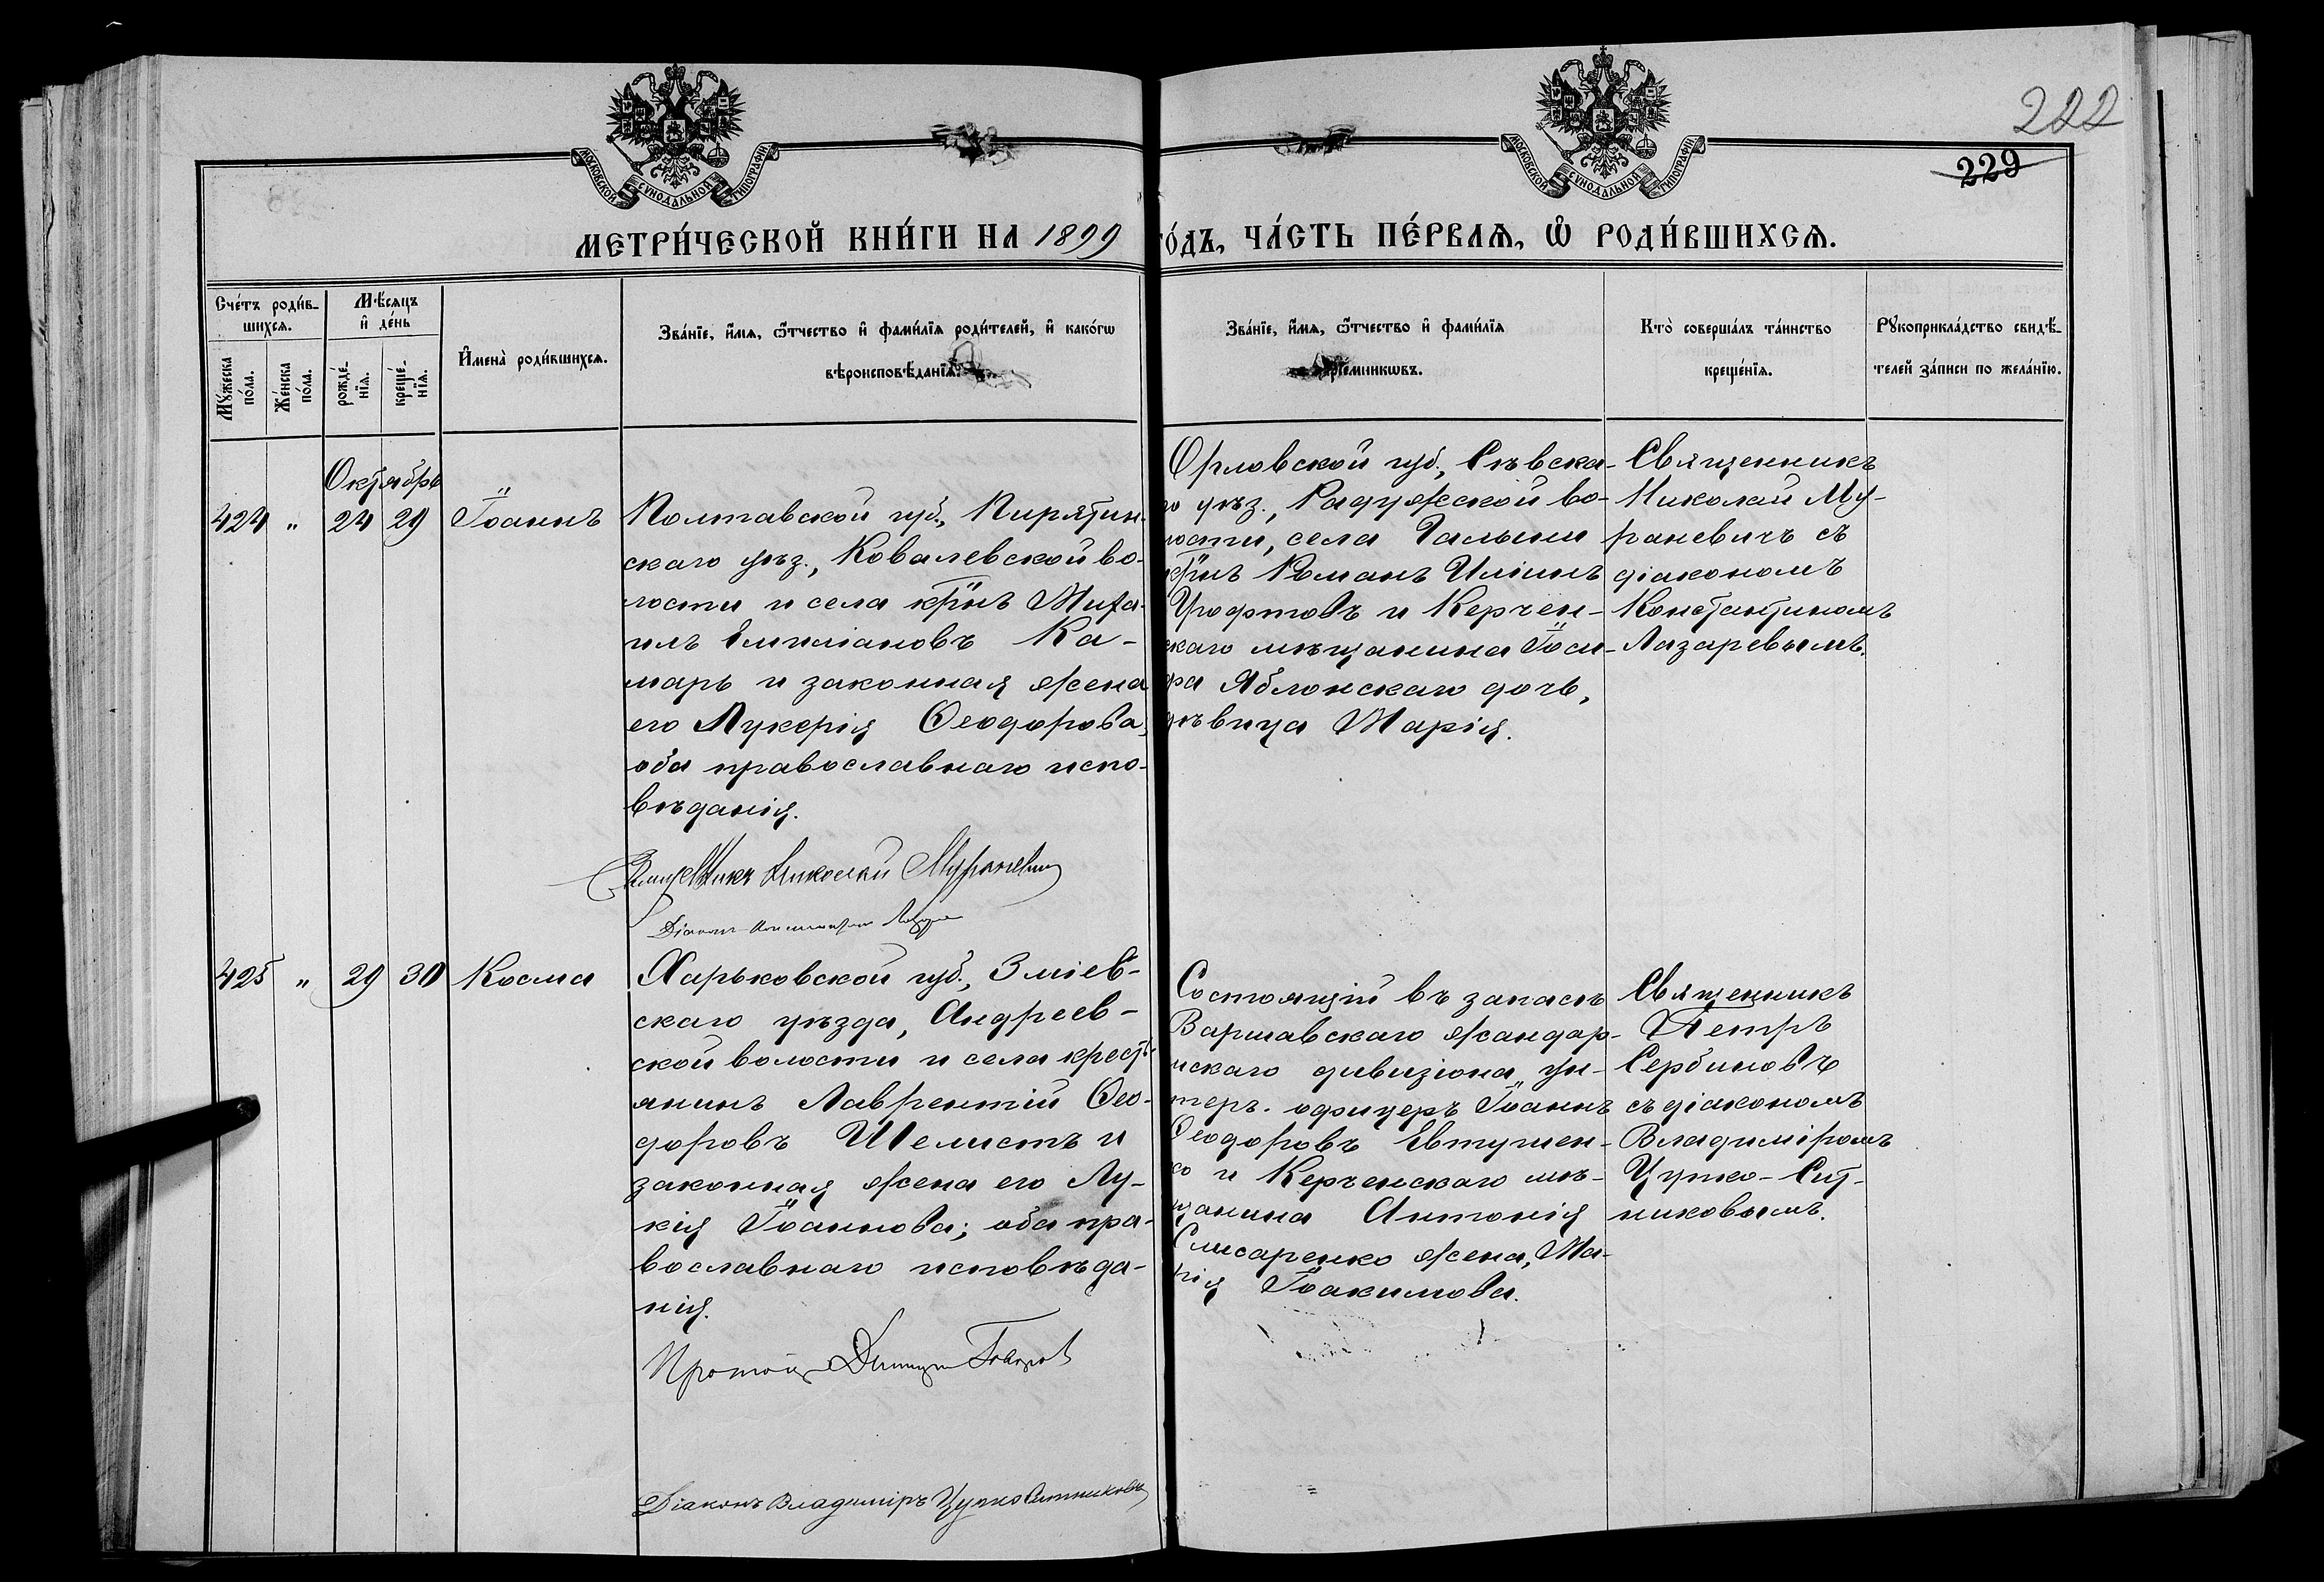 222
229
МОСКОВСКОЙ СѴНОДАЛЬНОЙ ТИПОГРАФІИ
МОСКОВСКОЙ СѴНОДАЛЬНОЙ ТИПОГРАФІИ
МЕТРИ́ЧЕСКОЙ КНИ́ГИ НА 1899 ГО́ДЪ, ЧА́СТЬ ПЕ́РВАѦ, Ѡ РОДИ́ВШИХСѦ.
Сче́тъ роди́в-
шихсѧ.
Мꙋ́жеска
по́ла.
Же́нска
по́ла.
Мѣ́сѧцъ
и де́нь
рожде́-
нїѧ.
креще́-
нїѧ.
Имена̀ роди́вшихсѧ.
Зва́нїе, и́мѧ, ѻ́тчество и фами́лїѧ роди́телей, и како́гѡ
вѣроисповѣ́данїѧ.
Зва́нїе, и́мѧ, ѻ́тчество и фами́лїѧ
прїе́мникѡвъ.
Кто̀ соверша́лъ та́инство
креще́нїѧ.
Рꙋкоприкла́дство свидѣ́-
телей за́писи по жела́нїю.
Октябрь
424 " 24 29 Іоаннъ
Полтавской губ., Пирятин-
скаго уѣз., Ковалевской во-
лости и села кр̃нъ Миха-
илъ Емиліановъ Ка-
марь и законная жена
его Лукерія Ѳеодорова,
оба православнаго испо-
вѣданія.
Священникъ Николай Мураневич
Діаконъ Константин
Орловской губ., Сѣвска-
го уѣз., Радужской во-
лости, села
кр̃нъ Романъ Иліинъ
и Керчен-
скаго мѣщанина Іоси-
фа Яблонскаго дочь,
дѣвица Марія.
Священникъ
Николай Му-
раневичъ съ
діакономъ
Константиномъ
Лазаревымъ.
425 " 29 30 Косма
Харьковской губ., Зміев-
скаго уѣзда, Андреев-
ской волости и села кресть-
янинъ Лаврентій Ѳео-
доровъ Шелистъ и
законная жена его Лу-
кія Іоаннова; оба пра-
вославнаго исповѣда-
нія.
Протоі Димитр
Діаконъ Владиміръ Цурко Ситниковъ
Состоящій въ запасѣ
Варшавскаго жандар-
мскаго дивизіона, ун-
теръ-офицеръ Іоаннъ
Ѳеодоровъ Евтушен-
ко и Керченскаго мѣ-
щанина Антонія
Слисаренко жена, Ма-
рія Іоакимова.
Священникъ
Петръ
Сербиновъ
съ діакономъ
Владиміромъ
Цурко-Сит-
никовымъ.